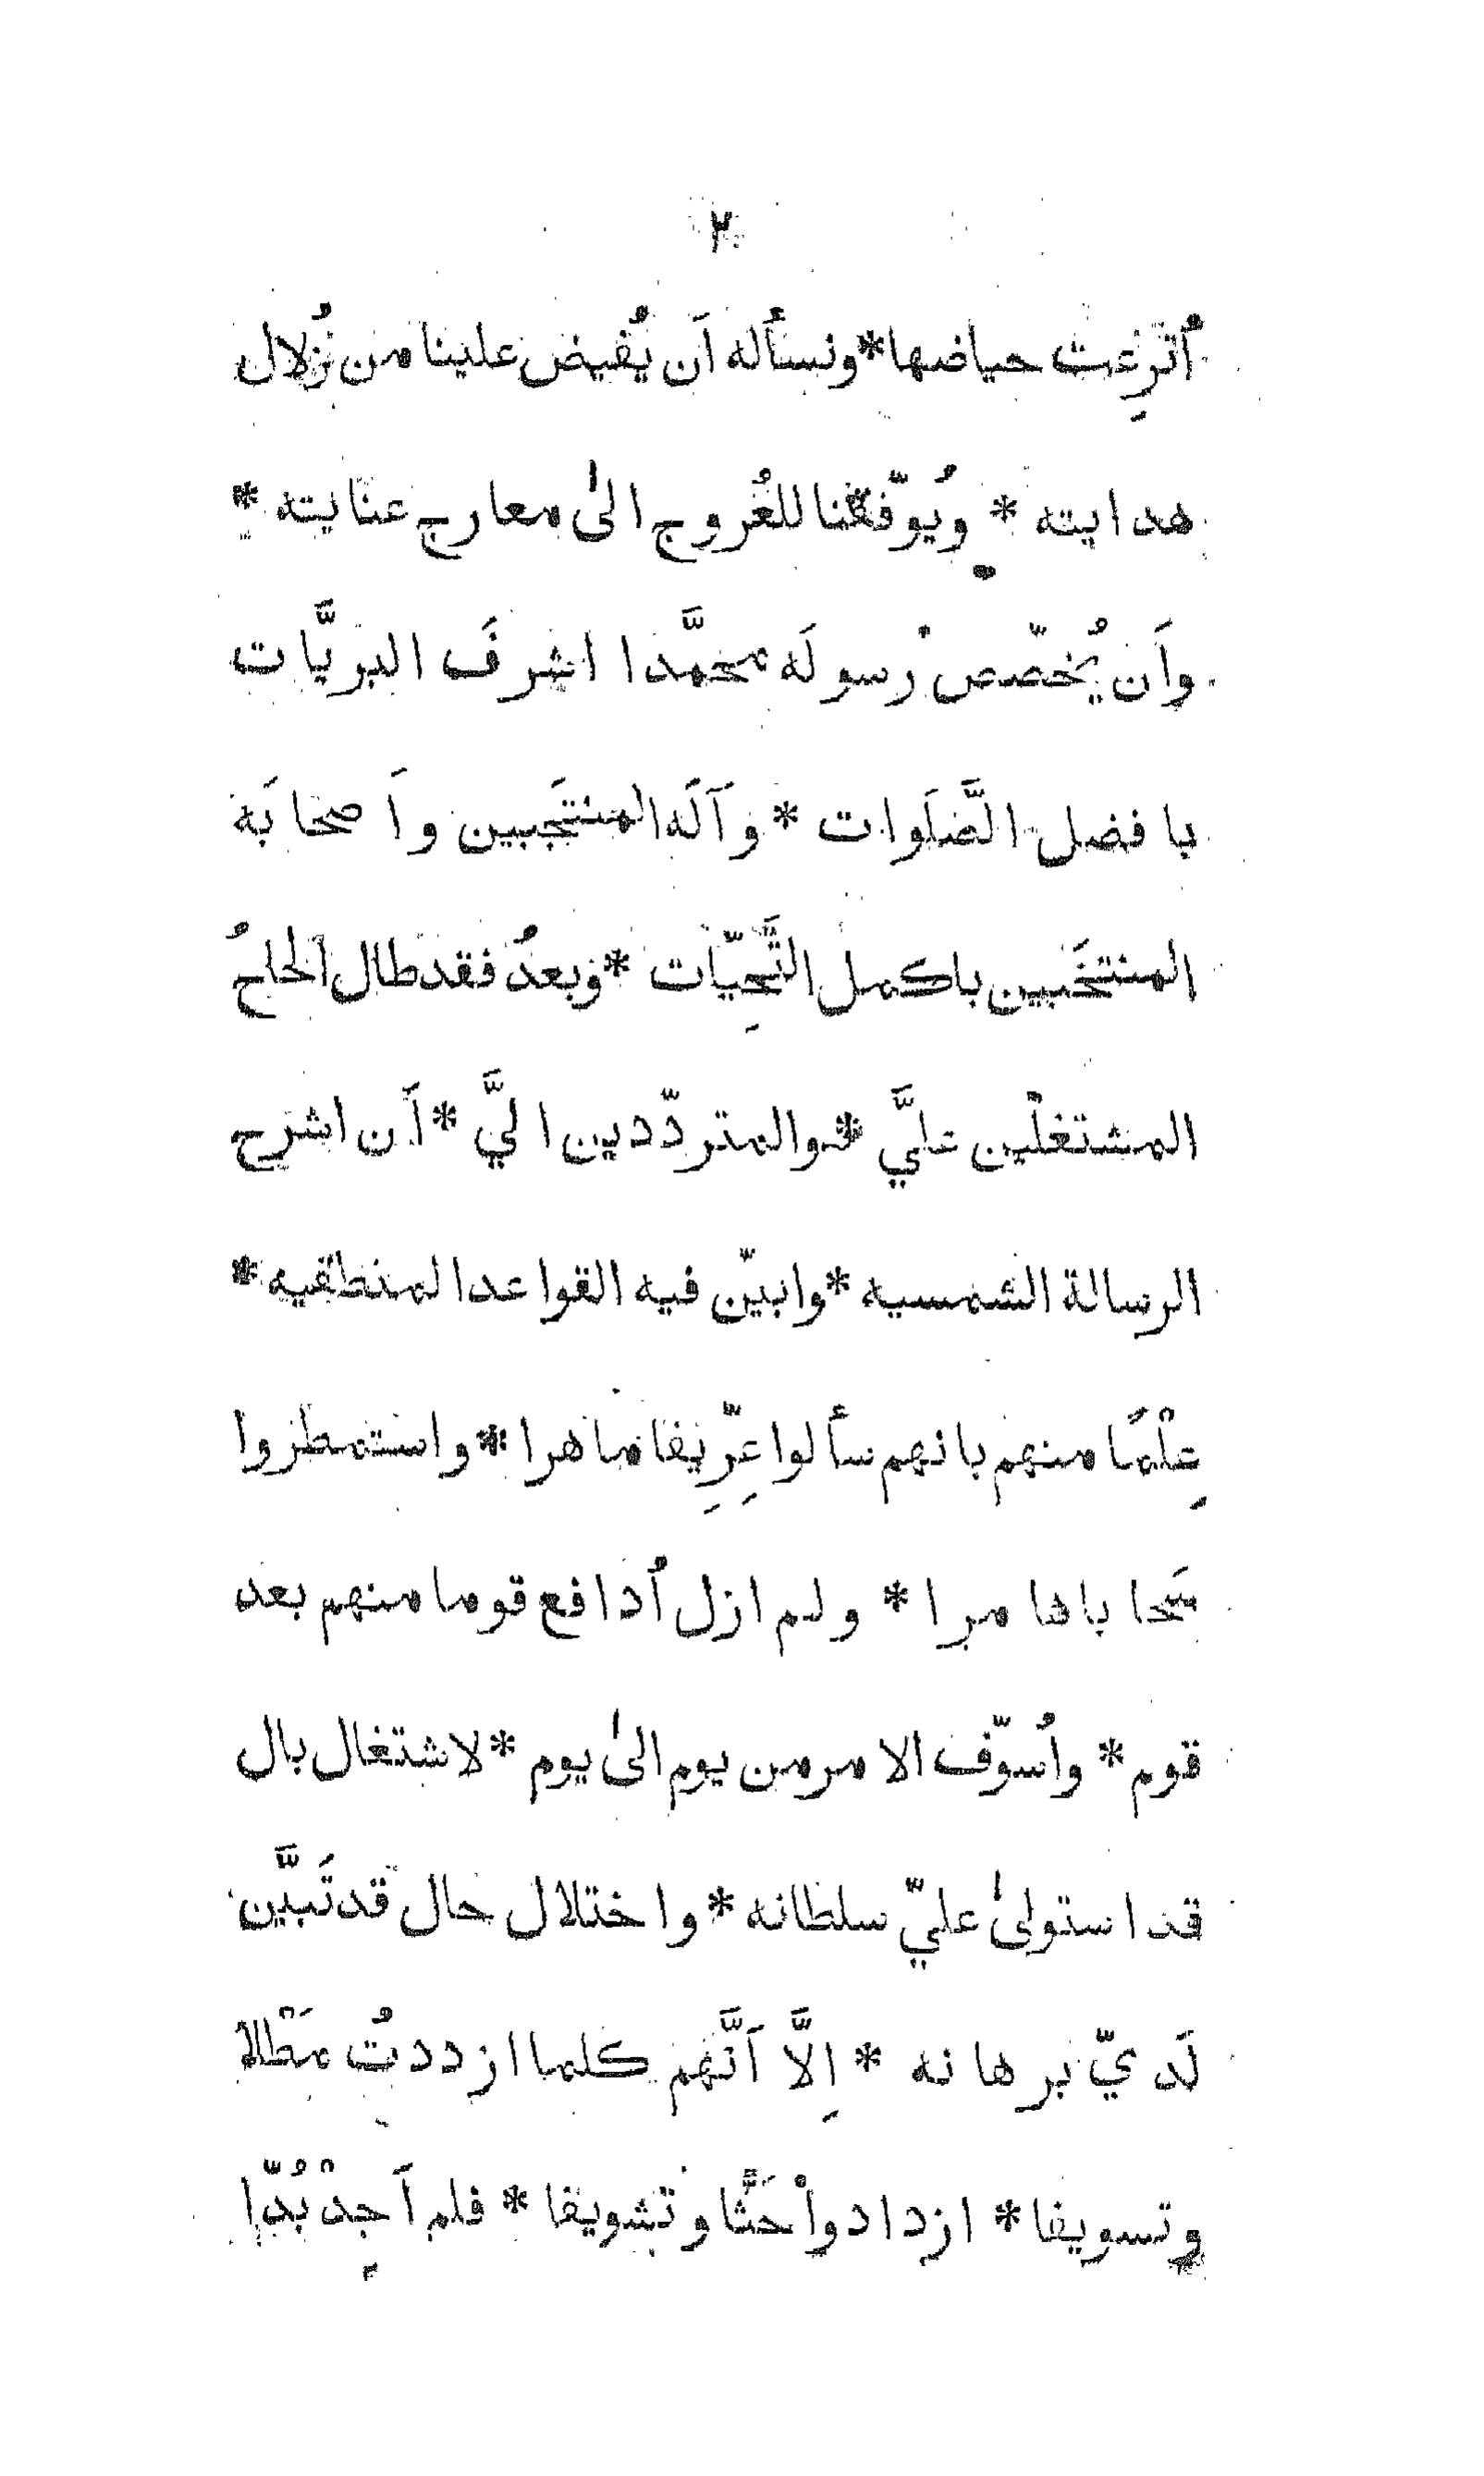 ٢
أُترِعت حياضها * ونسأله اَن يُفيض علينا من زُلال
هدايته * ويُوفّقنا للعُروج الىٰ معارج عنايته *
واَن يُخصّص رسولَه محمَّدا اشرفَ البريَّات
بافضل الصَّلَوات * وآلَه المنتَجَبين واَصحابَه
المنتخَبين باكمل التَّحِيّات * وبعدُ فقد طال اَلحاحُ
المشتغلْين عليَّ * والمتردّدين اليَّ * اَن اشرح
الرسالة الشمسيه * وابيّن فيه القواعد المنطقيه *
عِلْمًا منهم بانهم سألوا عِرِّيفا ماهرا * واستمطروا
سَحابا هامرا * ولم ازل اُدافع قوما منهم بعد
قوم * واُسوّف الامر من يوم الىٰ يوم * لاشتغال بال
قد استولىٰ عليّ سلطانه * واختلال حال قد تَبيَّن
لَديّ برهانه * اِلَّا اَنَّهم كلما ازددتُ مَطْلا
وتسويفا * ازدادواْ حَثًّا وتشويقا * فلم اَجِدْ بُدّا